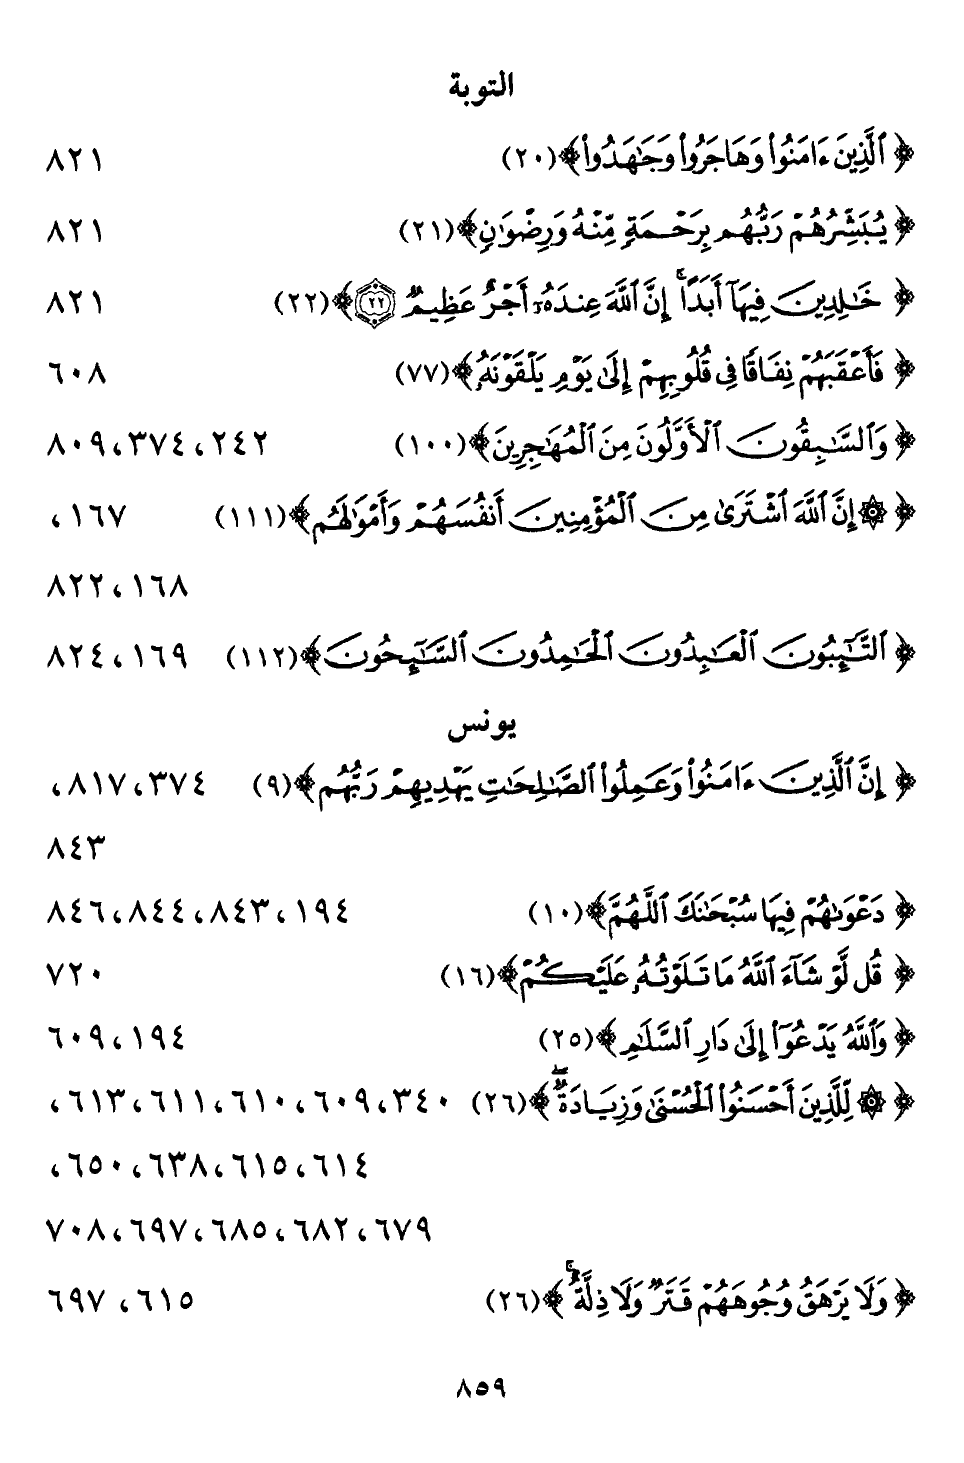 التوبة
﴿ ٱلَّذِينَ ءَامَنُوا۟ وَهَاجَرُوا۟ وَجَـٰهَدُوا۟﴾(٢٠) ٨٢١
﴿ يُبَشِّرُهُمْ رَبُّهُم بِرَحْمَةٍ مِّنْهُ وَرِضْوَٰنٍ﴾(٢١) ٨٢١
﴿ خَـٰلِدِينَ فِيهَآ أَبَدًا ۚ إِنَّ ٱللَّهَ عِندَهُۥٓ أَجْرٌ عَظِيمٌ ٢٢﴾(٢٢) ٨٢١
﴿ فَأَعْقَبَهُمْ نِفَاقًا فِى قُلُوبِهِمْ إِلَىٰ يَوْمِ يَلْقَوْنَهُۥ﴾(٧٧) ٦٠٨
﴿ وَٱلسَّـٰبِقُونَ ٱلْأَوَّلُونَ مِنَ ٱلْمُهَـٰجِرِينَ﴾(١٠٠) ٢٤٢، ٣٧٤، ٨٠٩
﴿ ۞ إِنَّ ٱللَّهَ ٱشْتَرَىٰ مِنَ ٱلْمُؤْمِنِينَ أَنفُسَهُمْ وَأَمْوَٰلَهُم﴾(١١١) ١٦٧،
١٦٨، ٨٢٢
﴿ ٱلتَّـٰٓئِبُونَ ٱلْعَـٰبِدُونَ ٱلْحَـٰمِدُونَ ٱلسَّـٰٓئِحُونَ﴾(١١٢) ١٦٩، ٨٢٤
يونس
﴿ إِنَّ ٱلَّذِينَ ءَامَنُوا۟ وَعَمِلُوا۟ ٱلصَّـٰلِحَـٰتِ يَهْدِيهِمْ رَبُّهُم﴾(٩) ٣٧٤، ٨١٧،
٨٤٣
﴿ دَعْوَىٰهُمْ فِيهَا سُبْحَـٰنَكَ ٱللَّهُمَّ﴾(١٠) ١٩٤، ٨٤٣، ٨٤٤، ٨٤٦
﴿ قُل لَّوْ شَآءَ ٱللَّهُ مَا تَلَوْتُهُۥ عَلَيْكُمْ﴾(١٦) ٧٢٠
﴿ وَٱللَّهُ يَدْعُوٓا۟ إِلَىٰ دَارِ ٱلسَّلَـٰمِ﴾(٢٥) ١٩٤، ٦٠٩
﴿ ۞ لِّلَّذِينَ أَحْسَنُوا۟ ٱلْحُسْنَىٰ وَزِيَادَةٌ ۖ﴾(٢٦) ٣٤٠، ٦٠٩، ٦١٠، ٦١١، ٦١٣،
٦١٤، ٦١٥، ٦٣٨، ٦٥٠،
٦٧٩، ٦٨٢، ٦٨٥، ٦٩٧، ٧٠٨
﴿ وَلَا يَرْهَقُ وُجُوهَهُمْ قَتَرٌ وَلَا ذِلَّةٌ ۚ﴾(٢٦) ٦١٥، ٦٩٧
٨٥٩